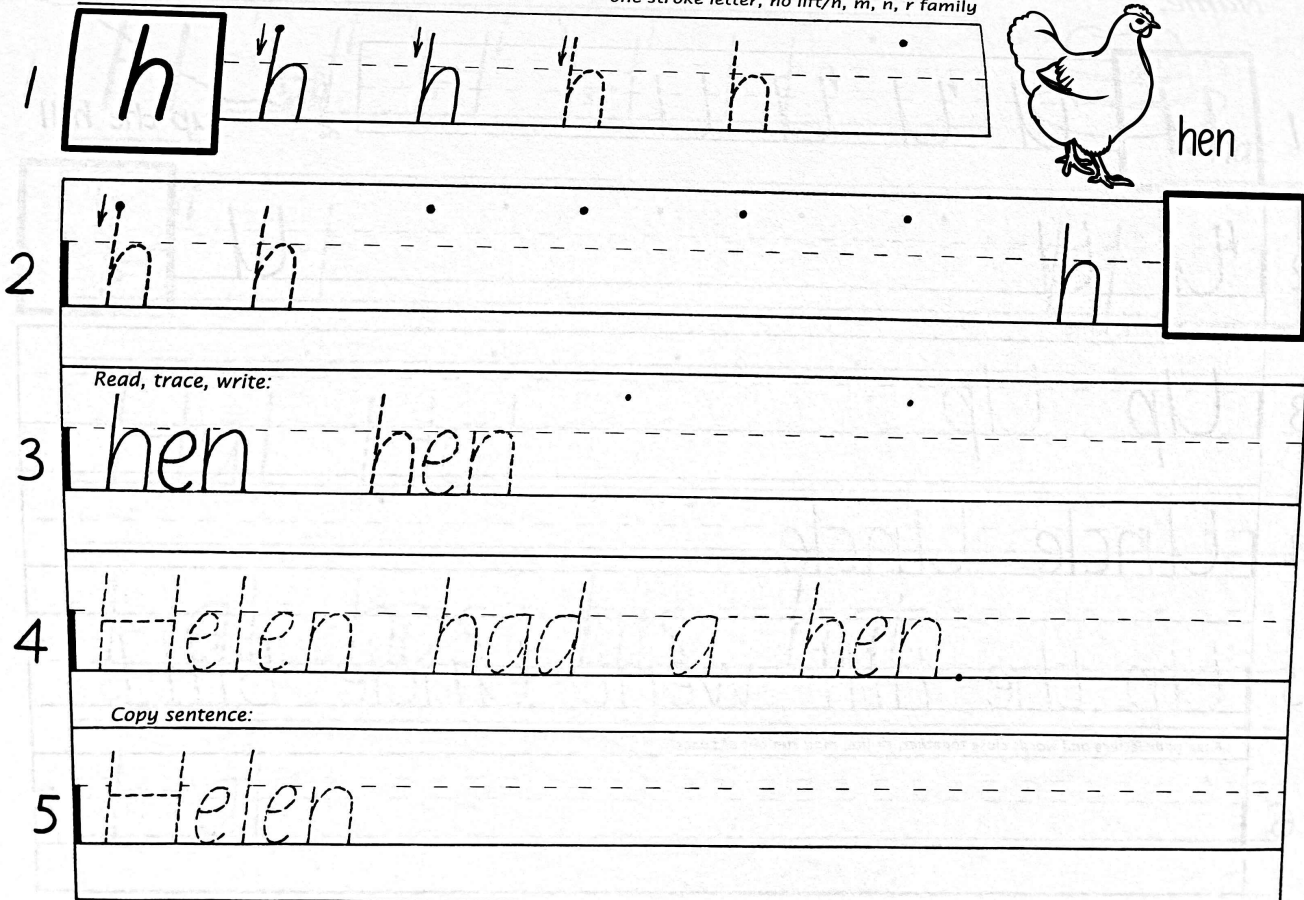 one stroke letter, no lift/h, m, n, r family
1 h h h h h
hen
2 h h h
Read, trace, write:
3 hen hen
4 Helen had a hen.
Copy sentence:
5 Helen